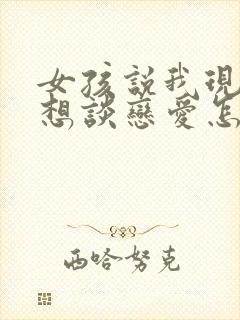 女孩説我現
想談戀愛怎
西哈努克